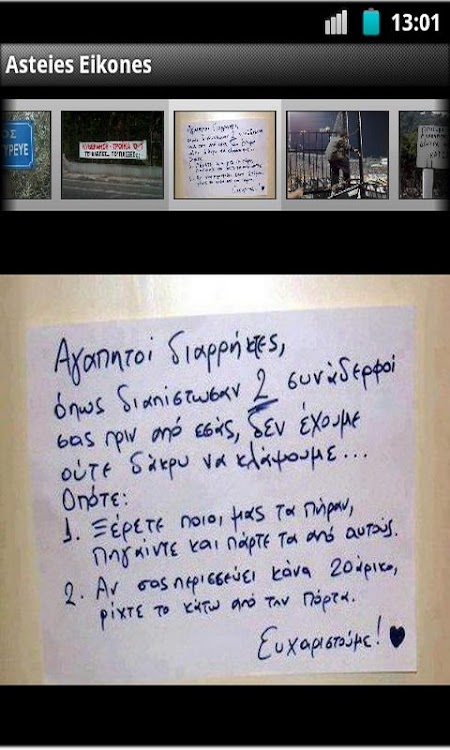 13:01
Asteies Eikones
Αγαπητοί διαρρήκτες,
όπως διαπίστωσαν 2 συνάδερφοι
σας πριν από εσάς, δεν έχουμε
ούτε δάκρυ να κλάψουμε...
Οπότε:
1. Ξέρετε ποιοι μας τα πήραν,
πηγαίντε και πάρτε τα από αυτούς.
2. Αν σας περισσεύει κάνα 20άρικο,
ρίχτε το κάτω από την πόρτα.
Ευχαριστούμε! ♥